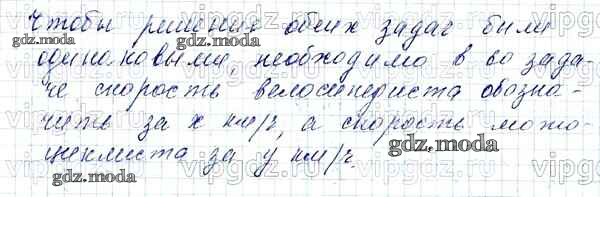 Чтобы решения обеих задач были
одинаковыми, необходимо в 60 зада-
че скорость велосипедиста обозна-
чить за x км/ч, а скорость мото-
циклиста за y км/ч.
gdz.moda
gdz.moda
gdz.moda
gdz.moda